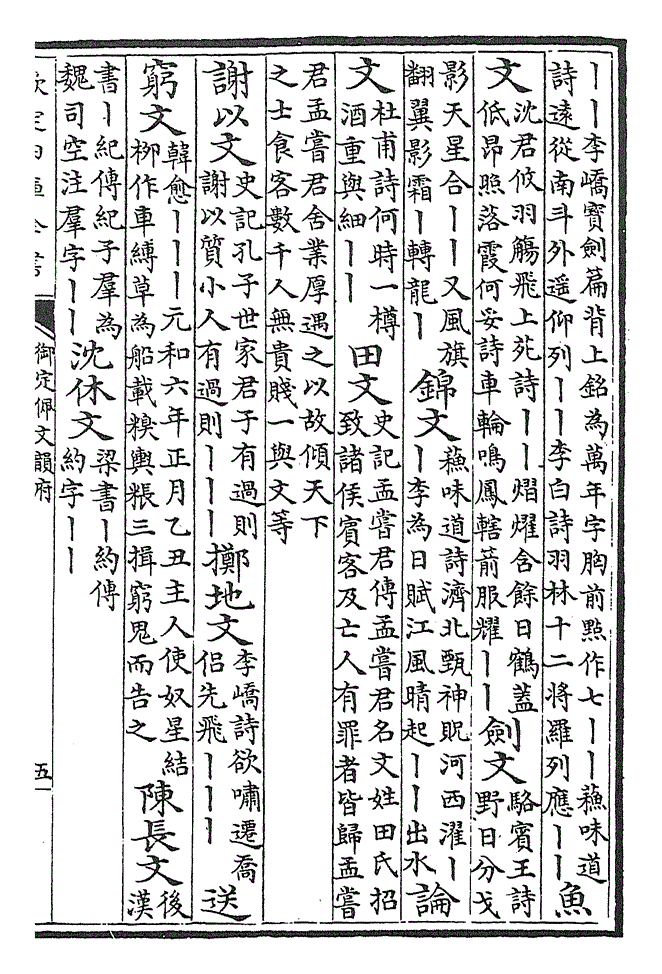 ｜｜李嶠寶劍篇背上銘為萬年字胸前㸃作七｜｜蘇味道
詩遠從南斗外遥仰列｜｜李白詩羽林十二將羅列應｜｜
魚
文
沈君攸羽觴飛上苑詩｜｜熠燿含餘日鶴蓋
低昂照落霞何妥詩車輪鳴鳳轄箭服耀｜｜
劍文
駱賓王詩
野日分戈
影天星合｜｜又風旗
翻翼影霜｜轉龍｜
錦文
蘇味道詩濟北甄神貺河西濯｜
｜李為日賦江風晴起｜｜出水
論
文
杜甫詩何時一樽
酒重與細｜｜
田文
史記孟嘗君傳孟嘗君名文姓田氏招
致諸侯賓客及亡人有罪者皆歸孟嘗
君孟嘗君舍業厚遇之以故傾天下
之士食客數千人無貴賤一與文等
謝以文
史記孔子世家君子有過則
謝以質小人有過則｜｜｜
擲地文
李嶠詩欲嘯遷喬
侣先飛｜｜｜
送
窮文
韓愈｜｜｜元和六年正月乙丑主人使奴星結
栁作車縛草為船載糗輿粻三揖窮鬼而告之
陳長文
後
漢
書｜紀傳紀子羣為
魏司空注羣字｜｜
沈休文
梁書｜約傳
約字｜｜
欽定四庫全書
御定佩文韻府
五